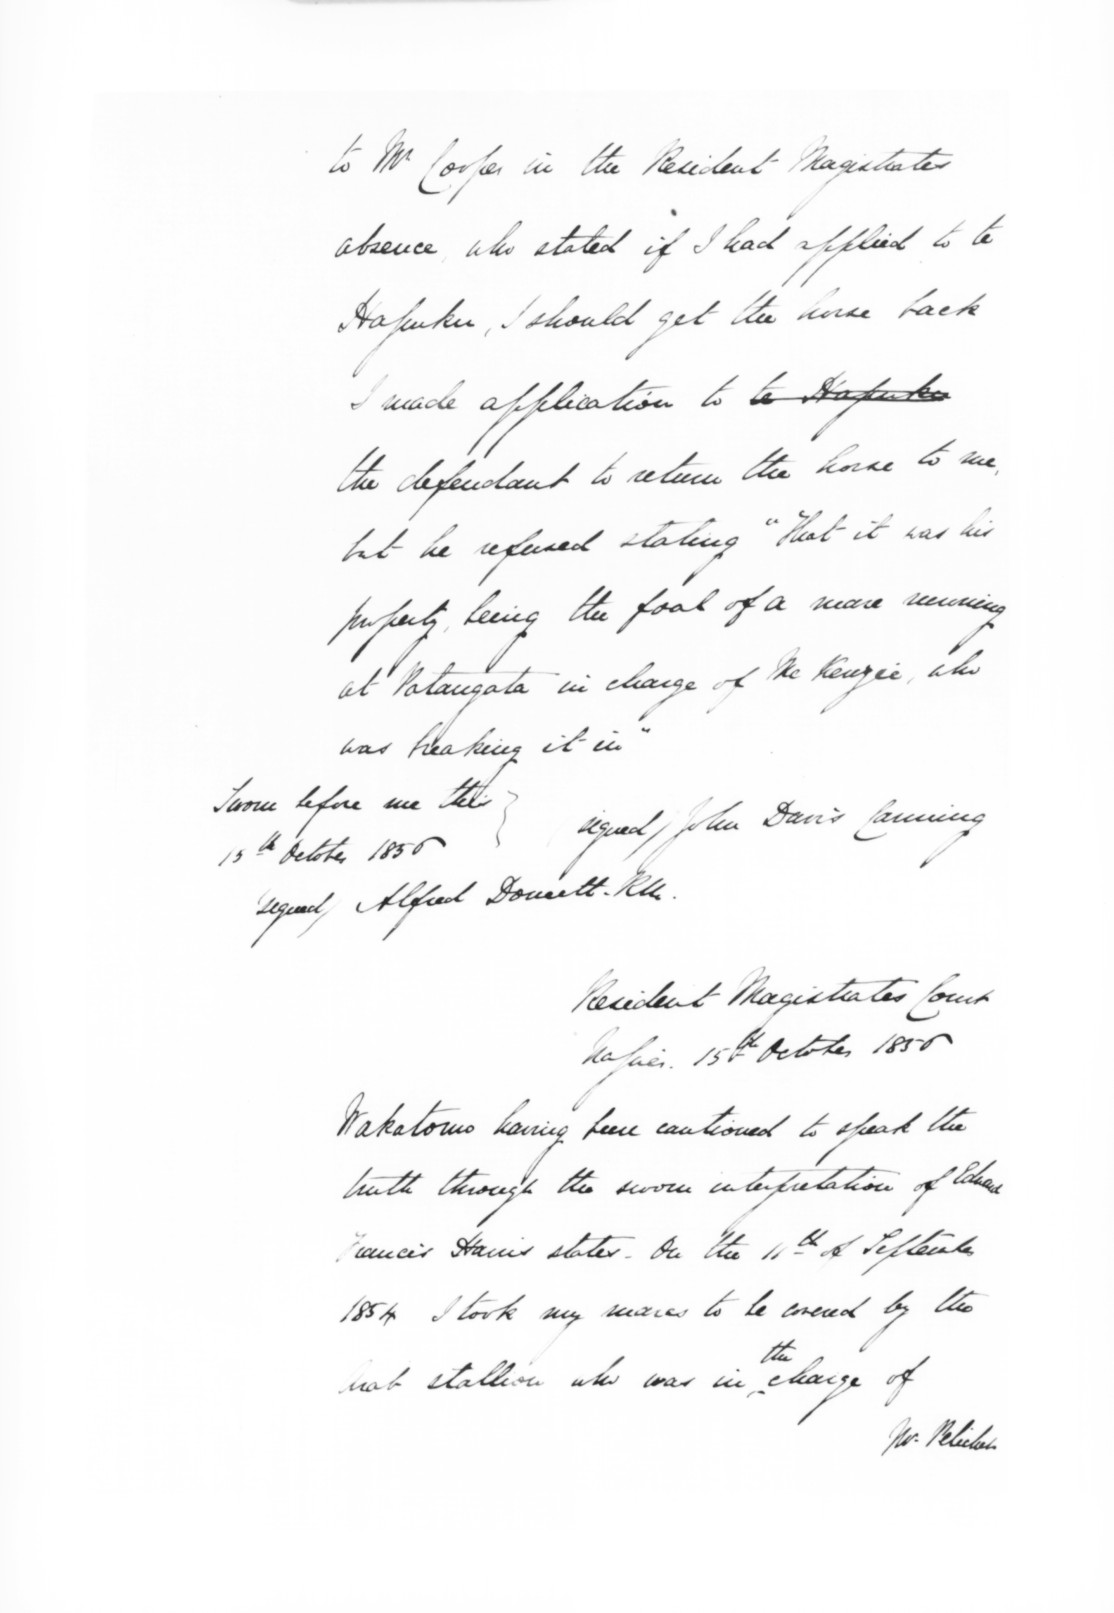 to Mr Cooper in the Resident Magistrates
absence, who stated if I had applied to te
Hapuku, I should get the horse back
I made application to te Hapuku
the defendant to return the horse to me,
but he refused stating "That it was his
property, being the foal of a mare running
at Patangata in charge of McKenzie, who
was breaking it in"
Sworn before me this
15th October 1856
signed) John Davis Canning
signed) Alfred Domett. RM.
Resident Magistrates Court
Napier. 15th October 1856
Wakatomo having been cautioned to speak the
truth through the sworn interpretation of Edward
Francis Harris states. On the 11th of September
1854 I took my mares to be covered by the
Arab stallion who was in the charge of
Mr.